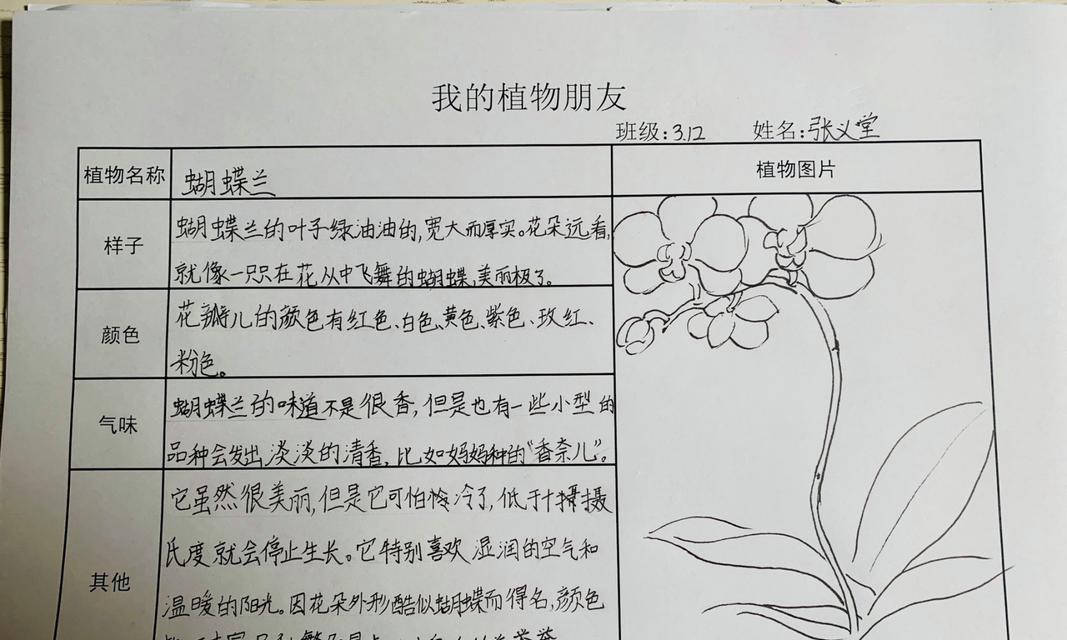 我的植物朋友
班级:3.12 姓名:张义堂
植物名称 蝴蝶兰 植物图片
样子
蝴蝶兰的叶子绿油油的,宽大而厚实。花朵远看,
就像一只只在花丛中飞舞的蝴蝶,美丽极了。
颜色
花瓣儿的颜色有红色、白色、黄色、紫色、玫红、
粉色。
气味
蝴蝶兰的味道不是很香,但是也有一些小型的
品种会发出淡淡的清香,比如妈妈种的“香奈儿”。
其他
它虽然很美丽,但是它可怕冷了,低于十摄摄
氏度就会停止生长。它特别喜欢湿润的空气和
温暖的阳光。因花朵外形酷似蝴蝶而得名,颜色